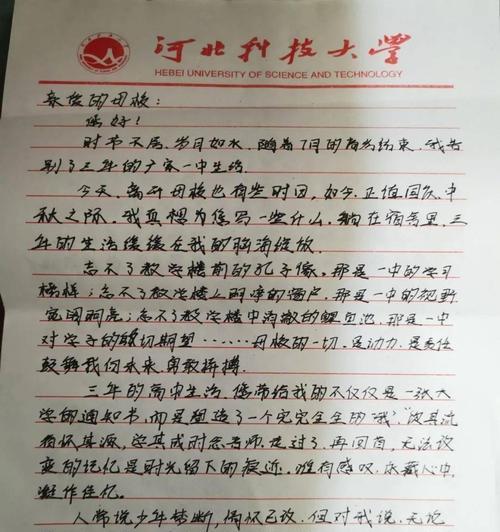 河北科技大学
HEBEI UNIVERSITY OF SCIENCE AND TECHNOLOGY
亲爱的母校：
您好！
时节不居，岁月如水，随着7月的离别结束，我告
别了三年的广宗一中生活
今天，离开母校也有些时日，如今，正值国庆、中
秋之际，我真想为您写一些什么，躺在宿舍里，三
年的生活缓缓在我的脑海绽放。
忘不了教学楼前的孔子像，那是一中的学习
榜样；忘不了教学楼上明净的窗户，那是一中的视野
宽阔明亮；忘不了教学楼中的鲤鱼池，那是一中
对学子的殷切期望……母校的一切，是动力，是责任
鼓舞我向未来，勇敢拼搏
三年的高中生活，您带给我的不仅仅是一张大
学的通知书，而是塑造了一个完完全全的“我”，“饮其流
者怀其源，学其成时念吾师”走过了，再回首，无法改
变的记忆是时光留下的痕迹。唯有感叹，永藏心中，
凝作佳忆。
人常说少年梦断，情怀已改，但对我说，无论